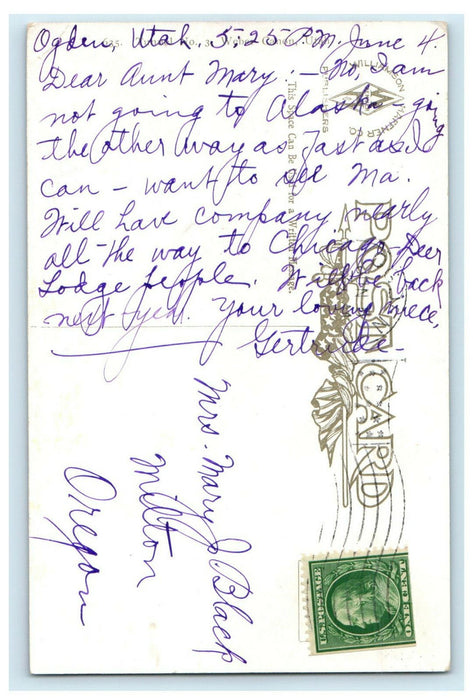 Ogden, Utah, 5-25 P.M. June 4.
Dear Aunt Mary:- No, I am
not going to Alaska - going
the other way as fast as I
can - want to see Ma.
Will have company nearly
all the way to Chicago - Deer
Lodge people. Will be back
next year. Your loving niece,
Gertrude -
Mrs. Mary J Black
Milton
Oregon
This Space Can Be Used for a Written Message.
POST CARD
WILLIAMSON
HAFFNER CO.
U.S. POSTAGE
ONE CENT